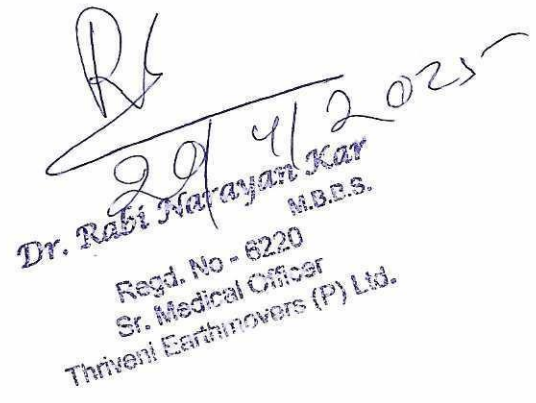 29/4/2025
Dr. Rabi Narayan Kar
M.B.B.S.
Regd. No - 6220
Sr. Medical Officer
Thriveni Earthmovers (P) Ltd.